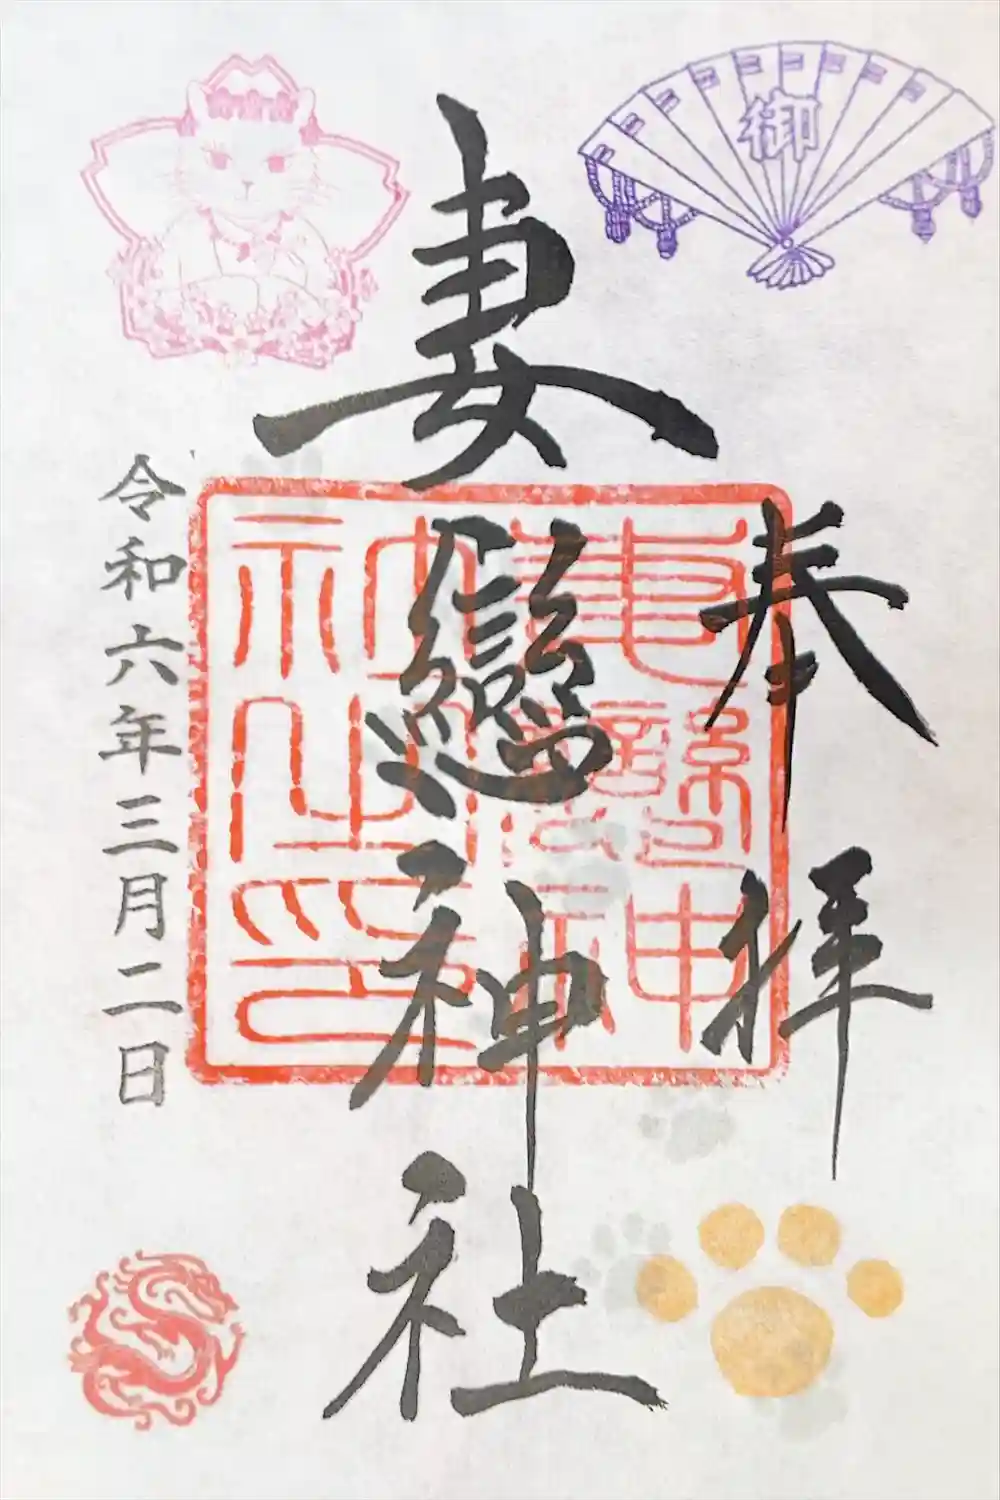 御
奉拝
妻戀神社
妻戀神
社之印
令和六年三月二日